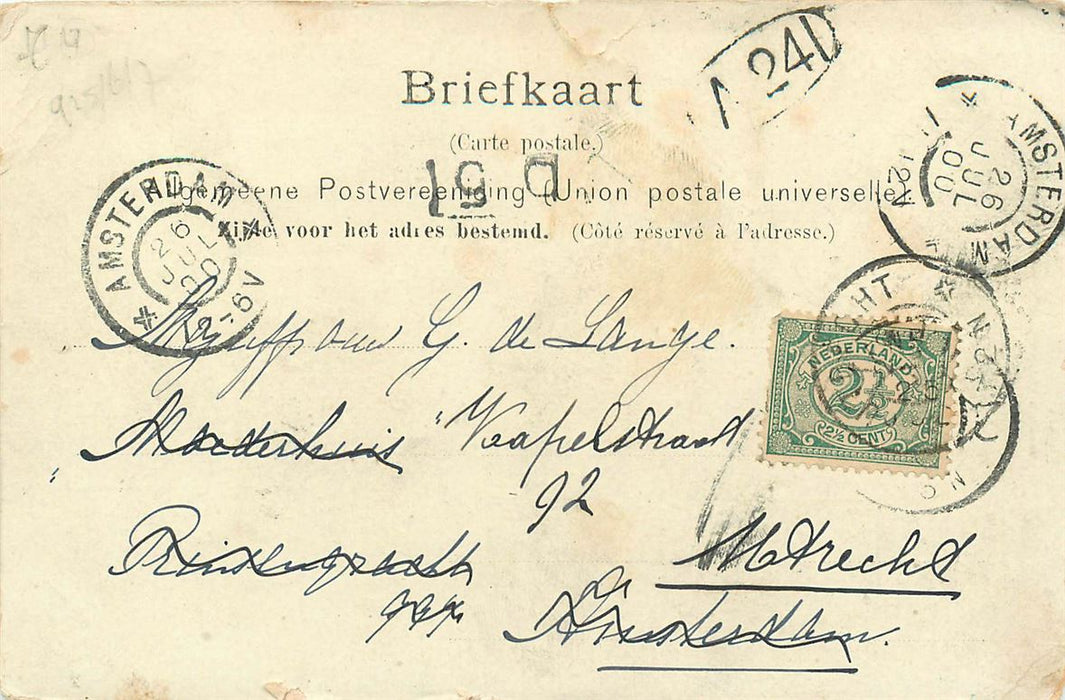 A 24
Briefkaart
(Carte postale.)
D 51
Algemeene Postvereeniging (Union postale universelle).
Zijde voor het adres bestemd. (Côté réservé à l'adresse.)
AMSTERDAM
26 JUL 00
2-6V
AMSTERDAM
26 JUL 00
12N
NEDERLAND
2½
2½ CENT
Mejuffrouw G. de Lange.
"Moederhuis" Kaapelstraat
92
Utrecht
Prinsengracht
Amsterdam.